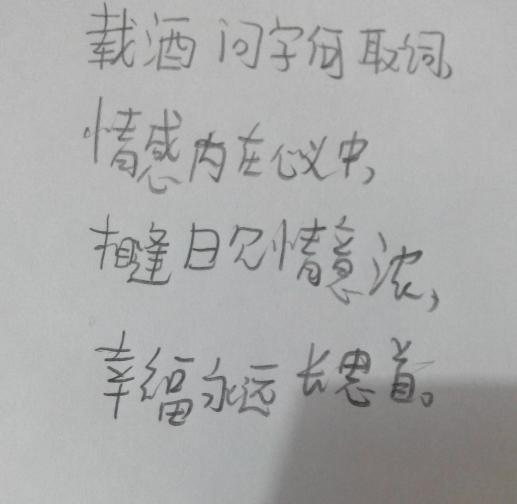 载酒问字何取词,
情感内在心议中,
相逢日欠情意浓,
幸福永远长思首。